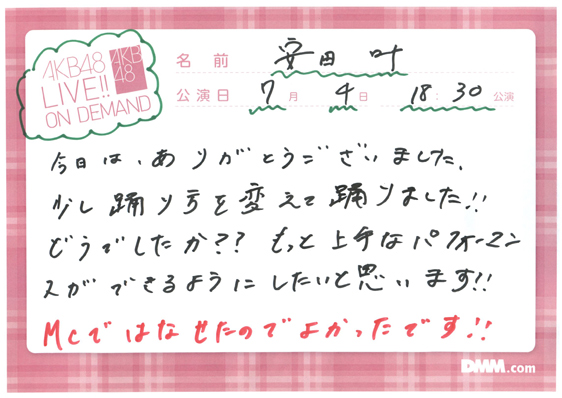 AKB48
LIVE!!
ON DEMAND
AKB
48
名前 安田 叶
公演日 7月 4日 18:30公演
今日は、ありがとうございました、
少し踊り方を変えて踊りました!!
どうでしたか?? もっと上手なパフォーマン
スができるようにしたいと思います!!
Mcではなせたのでよかったです!!
DMM.com